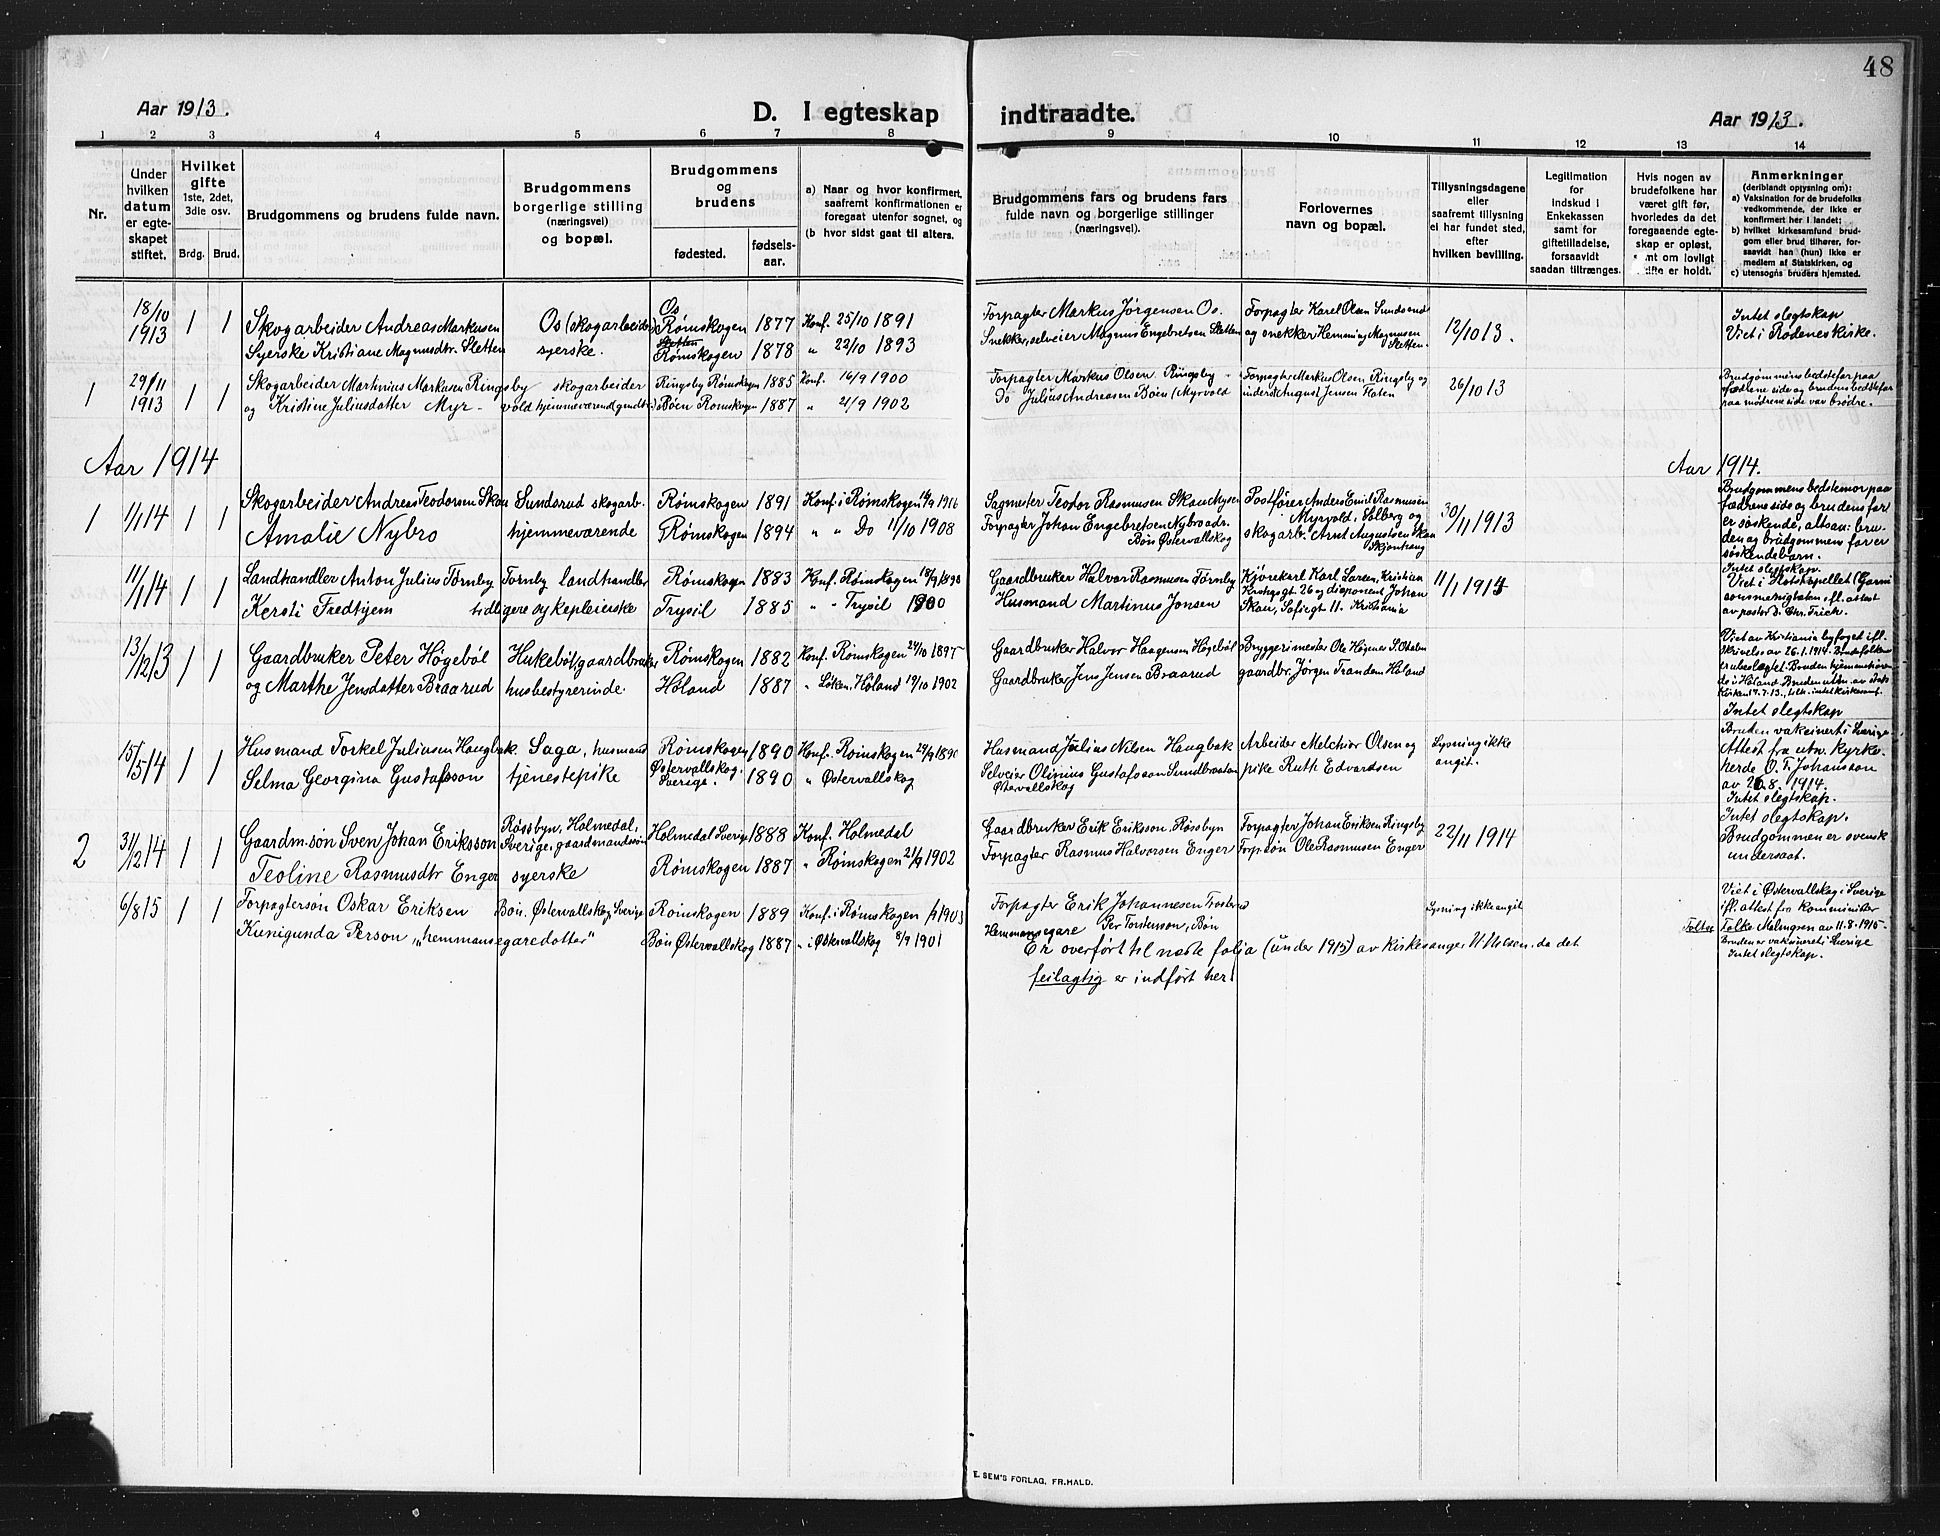 48
Aar 1913.
D. I egteskap indtraadte.
Aar 1913.
1 2 3 4 5 6 7 8 9 10 11 12 13 14
Nr.
Under hvilken datum er egteskapet stiftet.
Hvilket gifte 1ste, 2det, 3die osv.
Brdg. Brud.
Brudgommens og brudens fulde navn.
Brudgommens borgerlige stilling (næringsvei) og bopæl.
Brudgommens og brudens
fødested.
fødselsaar.
a) Naar og hvor konfirmert, saafremt konfirmationen er foregaat utenfor sognet, og
(b hvor sidst gaat til alters.
Brudgommens fars og brudens fars fulde navn og borgerlige stillinger (næringsvei).
Forlovernes navn og bopæl.
Tillysningsdagene eller saafremt tillysning ei har fundet sted, efter hvilken bevilling.
Legitimation for indskud i Enkekassen samt for giftetilladelse, forsaavidt saadan tiltrænges.
Hvis nogen av brudefolkene har været gift før, hvorledes da det foregaaende egteskap er opløst, samt om lovligt skifte er holdt.
Anmerkninger (deriblandt opysning om):
a) Vaksination for de brudefolks vedkommende, der ikke er konfirmert her i landet;
b) hvilket kirkesamfund brudgom eller brud tilhører, forsaavidt han (hun) ikke er medlem af Statskirken, og
c) utensogns bruders hjemsted.
18/10 1913 1 1
Skogarbeider Andreas Markusen
Syerske Kristiane Magnusdtr. Sletten
Os (skogarbeider)
syerske.
Os Rømskogen 1877
Sletten Rømskogen 1878
Konf. 25/10 1891
" 22/10 1893
Forpagter Markus Jørgensen Os.
Snekker, selveier Magnus Engebretsen Sletten
Forpagter Karel Olsen Sundsrud
og snekker Hemming Magnusen Sletten.
12/10 13.
Intet slegtskap
Viet i Rødenes kirke.
1 29/11 1913 1 1
Skogarbeider Martinius Markusen Ringsby skogarbeider
og Kristine Juliusdatter Myrvold hjemmeværende
Ringsby Rømskogen 1885
Bøen Rømskogen 1887
Konf. 16/9 1900
" 21/9 1902
Forpagter Markus Olsen Ringsby
Do Julius Andreasen Bøen (Myrvold
Forpagter Markus Olsen Ringsby og
inderst August Jensen Floten
26/10 13
Brudgommens bedstefar paa
fædrene side og brudens bedstefar
paa mødrene side var brødre.
Aar 1914
Aar 1914.
1 1/1 14 1 1
Skogarbeider Andreas Teodorsen Skau
Amalie Nybro
Sundsrud skogarb.
hjemmeværende
Rømskogen 1891
Rømskogen 1894
Konf. i Rømskogen
" " Do 11/10 1908
Sagmester Teodor Rasmusen Skau Mysen
Forpagter Johan Engebretsen Nybro adr.
Bøn Østervallskog
Postfører Anders Emil Rasmusen
Myrvold, Solberg og
skogarb. Arnt Augustsen Skau
Skjønhaug
30/11 1913
Brudgommens bedstemor paa
fædrene side og brudens far
er søskende, altsaa: bruden
og brudgommens far er
søskendebarn.
11/1 14 1 1
Landhandler Anton Julius Tørnby
Kersti Fredhjem
Tørnby landhandler
tidligere sykepleierske
Rømskogen 1883
Trysil 1885
Konf. Rømskogen 18/9 1898
" " Trysil 1900
Gaardbruker Halvor Rasmusen Tørnby
Husmand Martinus Jonsen
Kjørekarl Karl Larsen, Kristian
Krohgsgt 26 og disponent Johan
Skau, Sofiegt 11. Kristiania
11/1 1914
Intet slegtskap.
Viet i Slotskapellet (Garnisonsmenigheten
ifl. attest
av pastor D. Chr. Frich.
13/12 13 1 1
Gaardbruker Peter Høgebøl
og Marthe Jensdatter Braarud
Hukebøl, gaardbruker
husbestyrerinde.
Rømskogen 1882
Høland 1887
Konf. Rømskogen 24/10 1897
" Løken, Høland 19/10 1902
Gaardbruker Halvor Haagensen Høgebøl
Gaardbruker Jens Jensen Braarud
Bryggerimester Ole Høgner St.
gaardbr. Jørgen Trandem Høland
Viet av Kristiania byfoged ifl.
skrivelse av 26.1.1914. Brudefolkene
er ubeslegtet. Bruden hjemmehørende
i Høland. Bruden utm. av statskirken
Intet slegtskap
15/5 14 1 1
Husmand Torkel Juliusen Haugbak.
Selma Georgina Gustafsson
Saga, husmand
tjenestepike
Rømskogen 1890
Østervallskog. Sverige. 1890
Konf. Rømskogen
" Østervallskog
Husmand Julius Nilsen Haugbak
Selveier Olinius Gustafsson Sundbraatan
Østervallskog
Arbeider Melchior Olsen og
pike Ruth Edvardsen
Lysning ikke
angit.
Bruden vaksinert i Sverige
Attest fra utm. Kyrkoherde
O. T. Johansson
av 26.8.1914.
Intet slegtskap.
2 31/12 14 1 1
Gaardm.søn Sven Johan Eriksson
Teoline Rasmusdtr Enger
Røssbyn, Holmedal,
Sverige, gaardmandssøn
syerske
Holmedal Sverige 1888
Rømskogen 1887
Konf. Holmedal
" Rømskogen 21/9 1902
Gaardbruker Erik Eriksson. Røssbyn
Forpagter Rasmus Halvorsen Enger
Forpagter Johan Eriksen Ringsby
Forp.søn Ole Rasmusen Enger
22/11 1914
Intet slegtskap.
Brudgommen er svensk
undersaat.
6/8 15 1 1
Forpagtersøn Oskar Eriksen
Kunigunda Person „hemmansegaredotter"
Bøn, Østervallskog Sverige
Rømskogen 1889
Bøn Østervallskog 1887
Konf. i Rømskogen
" i Østervallskog 8/9 1901
Forpagter Erik Johannesen Trosterud
Hemmansegare Per Torstensson, Bøn
Lysning ikke angit
Viet i Østervallskog i Sverige
ifl. attest fra komminister
Folke Folke Malmgren av 11.8.1915.
Bruden er vaksinert i Sverige
Intet slegtskap.
Er overført til næste folja (under 1915) av kirkesanger N. Nelsen. da det
feilagtig er indført her.
E. SEM'S FORLAG, FR.HALD.